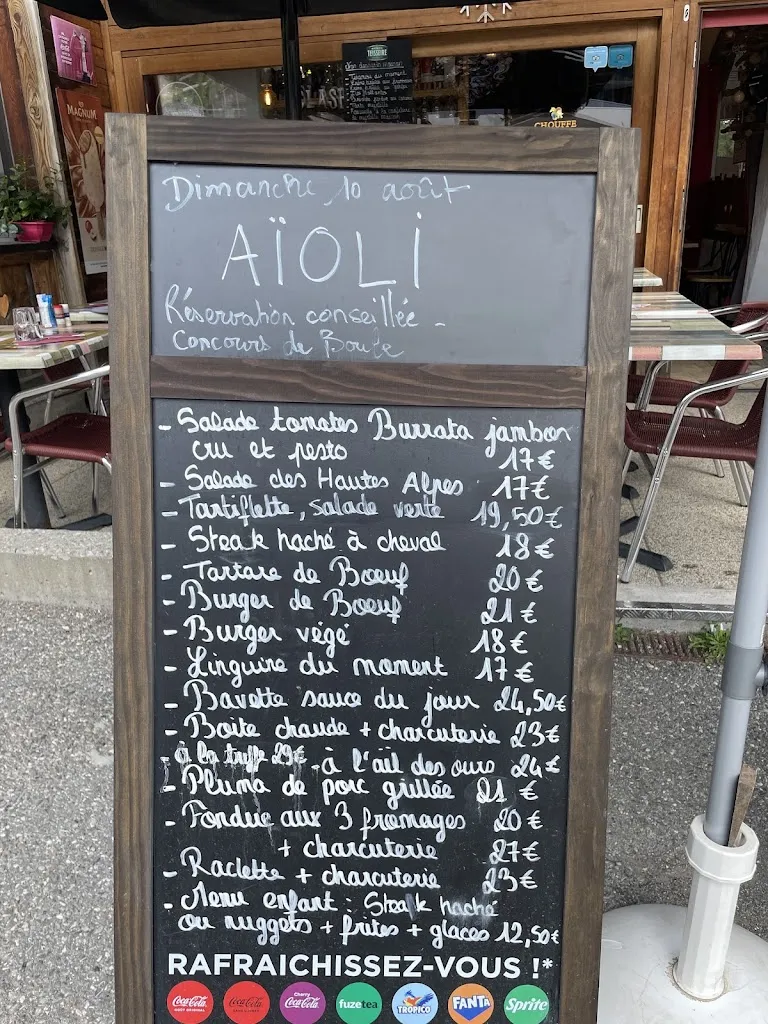 MAGNUM
TEISSEIRE
CHOUFFE
Dimanche 10 août
AÏOLI
Réservation conseillée -
Concours de Boule
- Salade tomates Burrata jambon
cru et pesto 17€
- Salade des Hautes Alpes 17€
- Tartiflette, salade verte 19,50€
- Steak haché à cheval 18€
- Tartare de Boeuf 20€
- Burger de Boeuf 21€
- Burger végé 18€
- Linguine du moment 17€
- Bavette sauce du jour 24,50€
- Boite chaude + charcuterie 23€
- à la truffe 29€ - à l'ail des ours 24€
- Pluma de porc grillée 21€
- Fondue aux 3 fromages 20€
+ charcuterie 27€
- Raclette + charcuterie 23€
- Menu enfant : Steak haché
ou nuggets + frites + glaces 12,50€
RAFRAICHISSEZ-VOUS !*
Coca-Cola GOÛT ORIGINAL Coca-Cola Cherry Coca-Cola fuzetea TROPICO FANTA Sprite